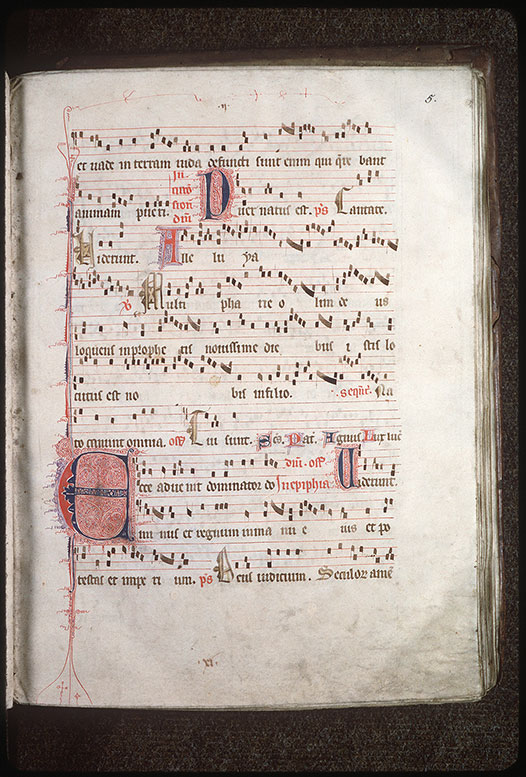 5.
et uade in terram iuda defuncti sunt enim qui q̄re bant
animam pueri. In circūcisione dn̄i Puer natus est. p̄s Cantate.
Viderunt. Alle lu ya
℣ Multi pha rie o lim de us
loquens in prophe tis nouissime die bus i stis lo
cutus est no bis in filio. seqn̄c̄. Na
to canunt omnia. off̄ Tui sunt. Sc̄s. Pat̄. Agnus Lux luc̄
Ecce aduenit dominator do In epiphīa dn̄i. off̄ Viderunt.
mi nus et regnum in ma nu e ius et po
testas et impe ri um. p̄s Deus iudicium. Seculor̄ amē
.xi.